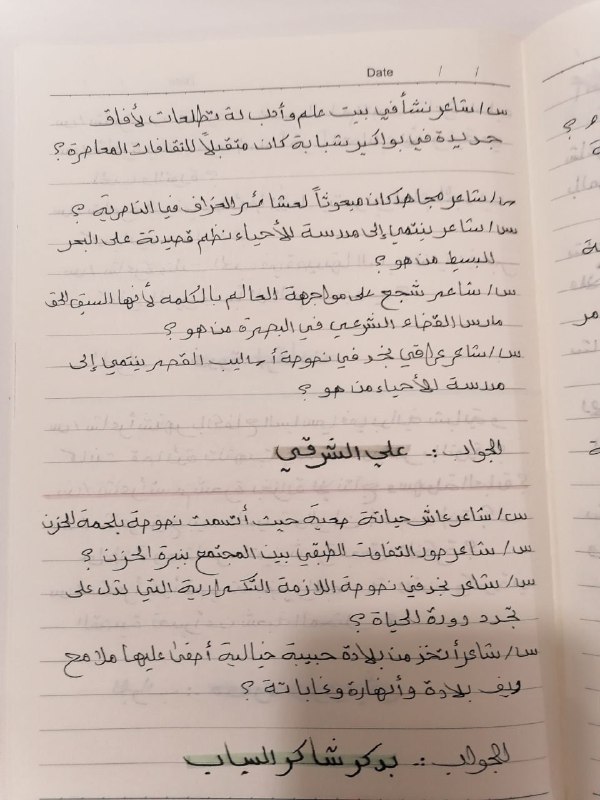 Date / /
س/ شاعر نشأ في بيت علم وأدب له تطلعات لأفاق
جديدة في بواكير شبابة كان متقبلاً للثقافات المعاصرة ؟
س/ شاعر مجاهد كان مبعوثاً لعشائر العراف في الناصرية ؟
س/ شاعر ينتمي إلى مدرسة الأحياء نظم قصيدتة على البحر
البسيط من هو ؟
س/ شاعر شجع على مواجهة الظالم بالكلمه لأنها السيق الحق
مارس القضاء الشرعي في البصرة من هو ؟
س/ شاعر عراقي نجد في نصوصة أساليب القصر ينتمي إلى
مدرسة الأحياء من هو ؟
الجواب :. علي الشرقي
س/ شاعر عاش حياتة صعبة حيث أتسمت نصوصة بلحمة الحزن
س/ شاعر صور التفاوت الطبقي بين المجتمع بنبرة الحزن ؟
س/ شاعر نجد في نصوصة اللازمة التكرارية التي تدل على
تجدد وورة الحياة ؟
س/ شاعر أتخذ من بلادة حبيبة خيالية أضفى عليها ملامح
ريف بلادة وأنهارة وغاباتة ؟
الجواب :. بدر شاكر السياب